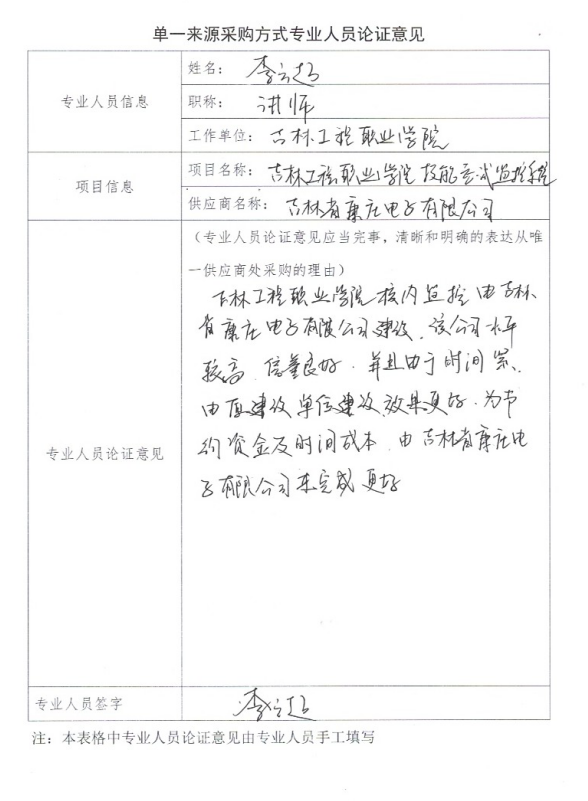 单一来源采购方式专业人员论证意见
专业人员信息
姓名：李立超
职称：讲师
工作单位：吉林工程职业学院
项目信息
项目名称：吉林工程职业学院技能考试监控系统
供应商名称：吉林省康庄电子有限公司
专业人员论证意见
（专业人员论证意见应当完事，清晰和明确的表达从唯
一供应商处采购的理由）
吉林工程职业学院校内监控由吉林
省康庄电子有限公司建设，该公司水平
较高、信誉良好．并且由于时间紧、
由原建设单位建设，效果更好．为节
约资金及时间成本．由吉林省康庄电
子有限公司来完成更好
专业人员签字
李立超
注：本表格中专业人员论证意见由专业人员手工填写